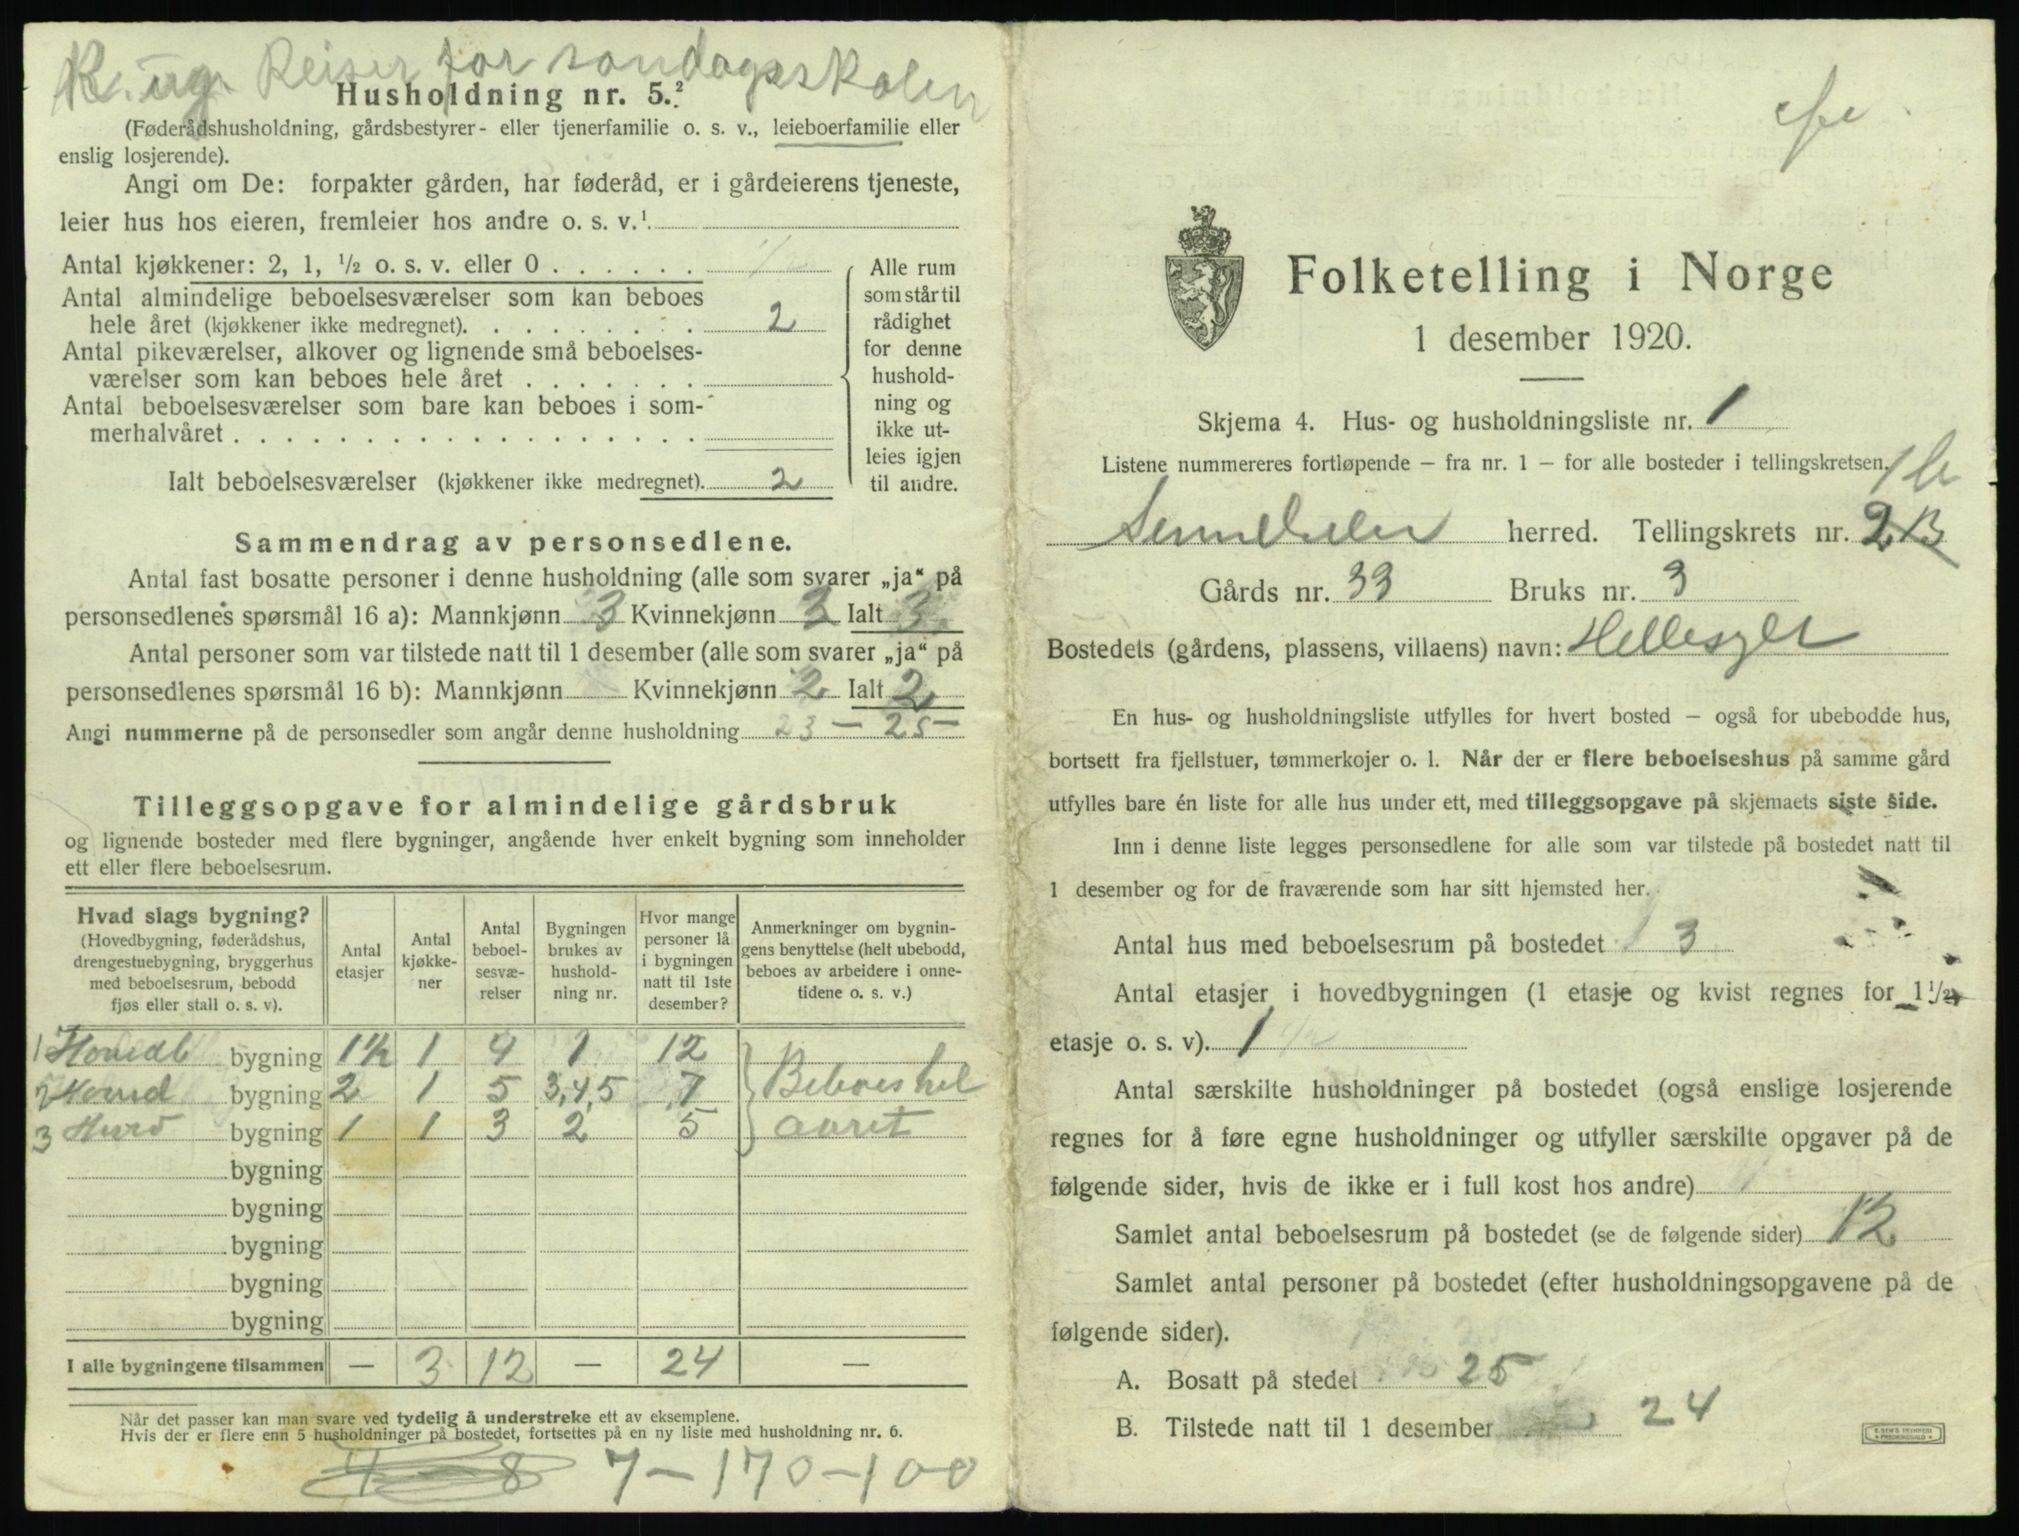 K. ug. Reiser for søndagsskolen
Husholdning nr. 5.²
(Føderådshusholdning, gårdsbestyrer- eller tjenerfamilie o. s. v., leieboerfamilie eller
enslig losjerende).
Angi om De: forpakter gården, har føderåd, er i gårdeierens tjeneste,
leier hus hos eieren, fremleier hos andre o. s. v.¹
Antal kjøkkener: 2, 1, ½ o. s. v. eller 0 . . . . . .
Antal almindelige beboelsesværelser som kan beboes
hele året (kjøkkener ikke medregnet). . . . . . . . . 2
Antal pikeværelser, alkover og lignende små beboelses-
værelser som kan beboes hele året . . . . . . .
Antal beboelsesværelser som bare kan beboes i som-
merhalvåret . . . . . . . . . . . . . . . . . .
Ialt beboelsesværelser (kjøkkener ikke medregnet). 2
Alle rum
som står til
rådighet
for denne
hushold-
ning og
ikke ut-
leies igjen
til andre.
Sammendrag av personsedlene.
Antal fast bosatte personer i denne husholdning (alle som svarer „ja“ på
personsedlenes spørsmål 16 a): Mannkjønn 3 Kvinnekjønn 3 Ialt 3
Antal personer som var tilstede natt til 1 desember (alle som svarer „ja“ på
personsedlenes spørsmål 16 b): Mannkjønn Kvinnekjønn 2 Ialt 2
Angi nummerne på de personsedler som angår denne husholdning 23 – 25 –
Tilleggsopgave for almindelige gårdsbruk
og lignende bosteder med flere bygninger, angående hver enkelt bygning som inneholder
ett eller flere beboelsesrum.
Hvad slags bygning?
(Hovedbygning, føderådshus,
drengestuebygning, bryggerhus
med beboelsesrum, bebodd
fjøs eller stall o. s. v).
Antal
etasjer
Antal
kjøkke-
ner
Antal
beboel-
sesvæ-
relser
Bygningen
brukes av
hushold-
ning nr.
Hvor mange
personer lå
i bygningen
natt til 1ste
desember?
Anmerkninger om bygnin-
gens benyttelse (helt ubebodd,
beboes av arbeidere i onne-
tidene o. s. v.)
1 Hovedb bygning 1½ 1 4 1 12
2 Hovud bygning 2 1 5 3,4,5 7 Beboes hel
3 bygning 1 1 3 2 5 aaret
bygning
bygning
bygning
bygning
bygning
I alle bygningene tilsammen — 3 12 — 24 —
Når det passer kan man svare ved tydelig å understreke ett av eksemplene.
Hvis der er flere enn 5 husholdninger på bostedet, fortsettes på en ny liste med husholdning nr. 6.
4 – 8 7 – 170 – 100
Folketelling i Norge
1 desember 1920.
Skjema 4. Hus- og husholdningsliste nr. 1
Listene nummereres fortløpende – fra nr. 1 – for alle bosteder i tellingskretsen.
herred. Tellingskrets nr. 2
Gårds nr. 33 Bruks nr. 3
Bostedets (gårdens, plassens, villaens) navn: Hellesylt
En hus- og husholdningsliste utfylles for hvert bosted – også for ubebodde hus,
bortsett fra fjellstuer, tømmerkojer o. l. Når der er flere beboelseshus på samme gård
utfylles bare én liste for alle hus under ett, med tilleggsopgave på skjemaets siste side.
Inn i denne liste legges personsedlene for alle som var tilstede på bostedet natt til
1 desember og for de fraværende som har sitt hjemsted her.
Antal hus med beboelsesrum på bostedet 3
Antal etasjer i hovedbygningen (1 etasje og kvist regnes for 1½
etasje o. s. v). 1
Antal særskilte husholdninger på bostedet (også enslige losjerende
regnes for å føre egne husholdninger og utfyller særskilte opgaver på de
følgende sider, hvis de ikke er i full kost hos andre)
Samlet antal beboelsesrum på bostedet (se de følgende sider) 12
Samlet antal personer på bostedet (efter husholdningsopgavene på de
følgende sider).
A. Bosatt på stedet 25
B. Tilstede natt til 1 desember 24